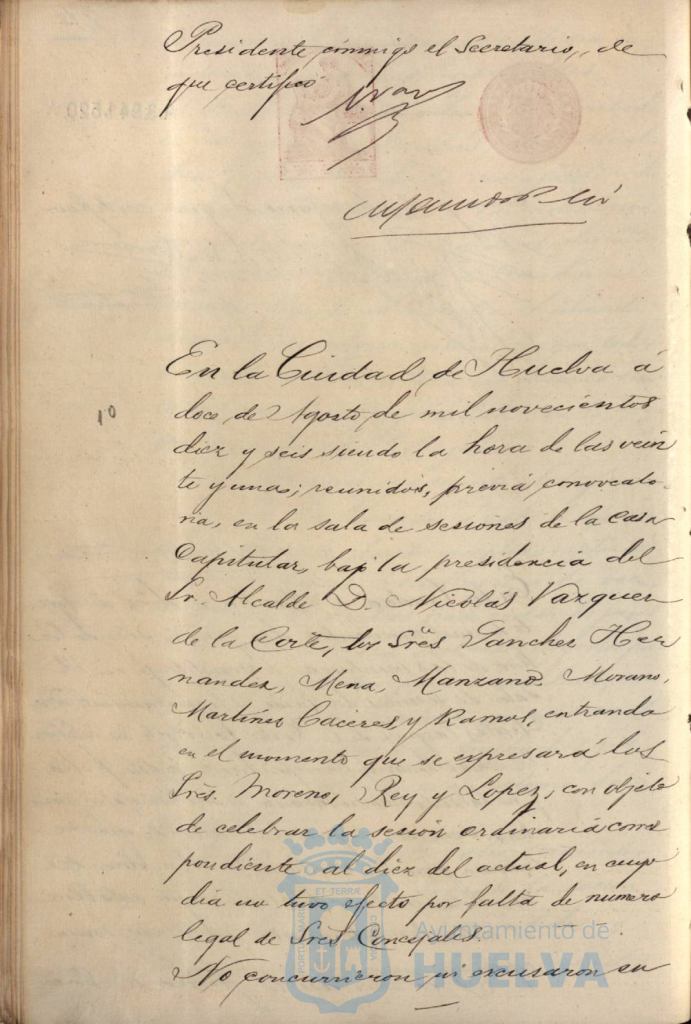 Presidente conmigo el Secretario, de
que certifico
En la Ciudad de Huelva á
1º
doce de Agosto de mil novecientos
diez y seis siendo la hora de las vein
te y una; reunidos, previa convocato-
ria, en la sala de sesiones de la Casa
Capitular, bajo la presidencia del
Sr. Alcalde D. Nicolás Vazquez
de la Corte, los Sres Sanchez Her
nandez, Mena, Manzano, Morano,
Martinez Caceres, y Ramos, entrando
en el momento que se expresará los
Sres. Moreno, Rey y Lopez, con objeto
de celebrar la sesión ordinaria corres
pondiente al diez del actual, en cuyo
dia no tuvo efecto por falta de numero
legal de Sres Concejales.
No concurrieron ni escusaron su
ET TERRÆ
Ayuntamiento de
HUELVA